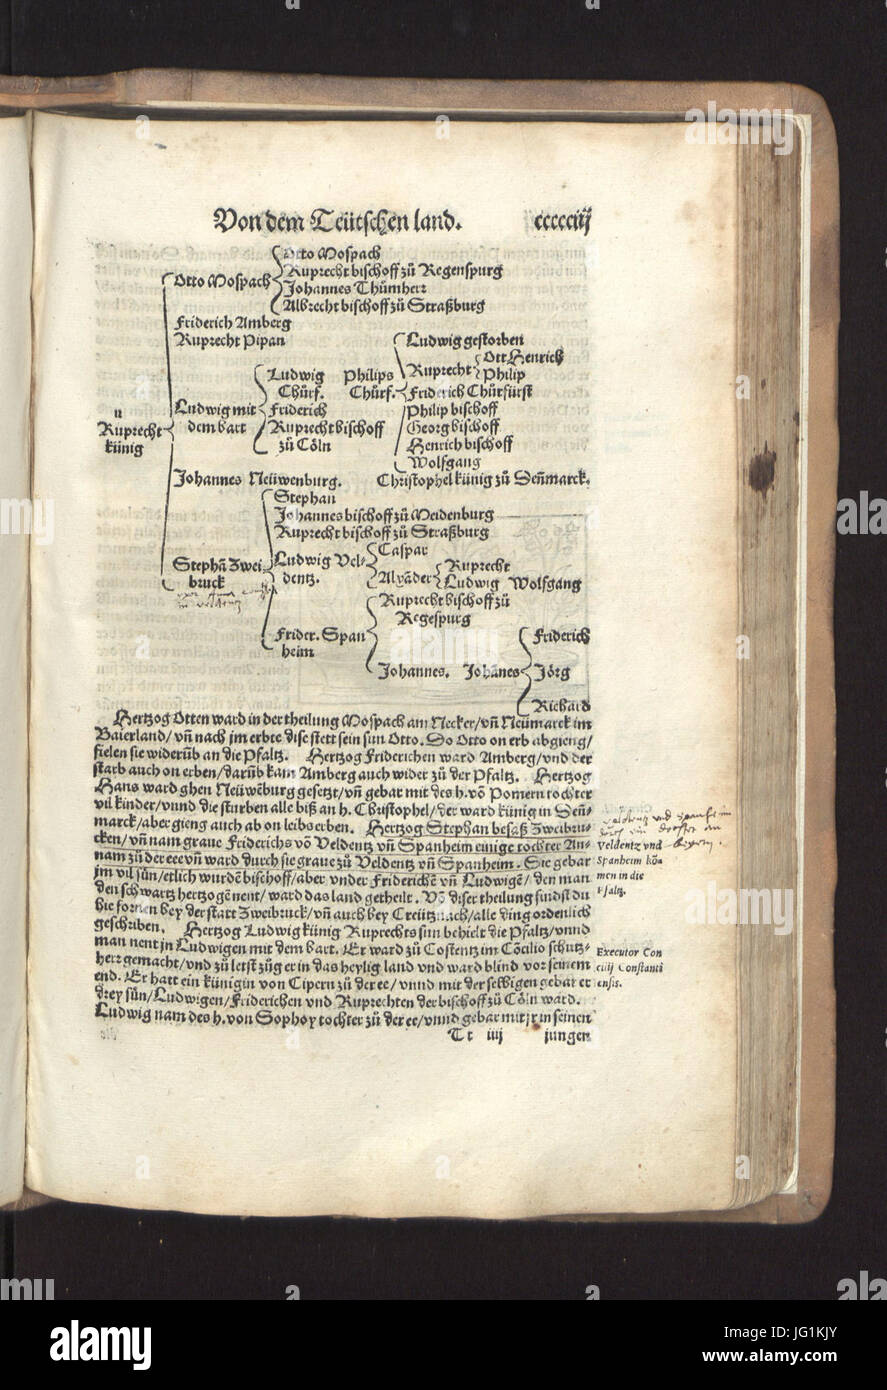 Von dem Teütschen land. ccccciij
Otto Mospach
Ruprecht bischoff zů Regenspurg
Otto Mospach
Johannes Thůmherr
Albrecht bischoff zů Straßburg
Friderich Amberg
Ruprecht Pipan
Ludwig gestorben
Ott Henrich
Ludwig Philips Ruprecht Philip
Chůrf. Chůrf. Friderich Chůrfürst
Ludwig mit Friderich Philip bischoff
u
Ruprecht dem bart Ruprecht bischoff Georg bischoff
künig zů Cöln Henrich bischoff
Wolfgang
Johannes Neüwenburg. Christophel künig zů Deñmarck.
Stephan
Johannes bischoff zů Meidenburg
Ruprecht bischoff zů Straßburg
Caspar
Stephã Zwei Ludwig Vel-
bruck dentz. Alexãder Ruprecht
Ludwig Wolfgang
in veldentz
Ruprecht bischoff zů
Regespurg
Frider. Span Friderich
heim
Johannes. Johãnes Jörg
Richard
Hertzog Otten ward in der theilung Mospach am Necker/vñ Neümarck im
Baierland/vñ nach jm erbte dise stett sein sun Otto. So Otto on erb abgieng/
fielen sie widerũb an die Pfaltz. Hertzog Friderichen ward Amberg/vnd der
starb auch on erben/darũb kam Amberg auch wider zů der Pfaltz. Hertzog
Hans ward ghen Neüwẽburg gesetzt/vñ gebar mit des h. võ Pomern tochter
vil kinder/vnnd die sturben alle biß an h. Christophel/der ward künig in Deñ-
marck/aber gieng auch ab on leibs erben. Hertzog Stephan besaß Zweibru-
cken/vñ nam graue Friderichs võ Veldentz vñ Spanheim einige tochter An-
nam zů der ee vñ ward durch sie graue zů Veldentz vñ Spanheim. Sie gebar
jm vil sün/etlich wurdẽ bischoff/aber vnder Friderichẽ vñ Ludwigẽ/den man
den schwartz hertzogen nent/ward das land getheilt. Võ diser theilung findst du
hie fornen bey der statt Zweibruck/vñ auch bey Creütznach/alle ding ordenlich
geschriben. Hertzog Ludwig künig Ruprechts sun behielt die Pfaltz/vnnd
man nent jn Ludwigen mit dem bart. Er ward zů Costentz im Cõcilio schutz-
herr gemacht/vnd zů letst züg er in das heylig land vnd ward blind vor seinem
end. Er hatt ein künigin von Cipern zů der ee/vnnd mit der selbigen gebar er
drey sün/Ludwigen/Friderichen vnd Ruprechten der bischoff zů Cöln ward.
Ludwig nam des h. von Sophoy tochter zů der ee/vnnd gebar mit jr in seinen
Tt iiij jungen
Veldentz vnd
Spanheim kõ
men in die
Pfaltz.
Executor Con
cilij Constanti
ensis.
alamy stock photo
alamy
Image ID: JG1KJY
www.alamy.com